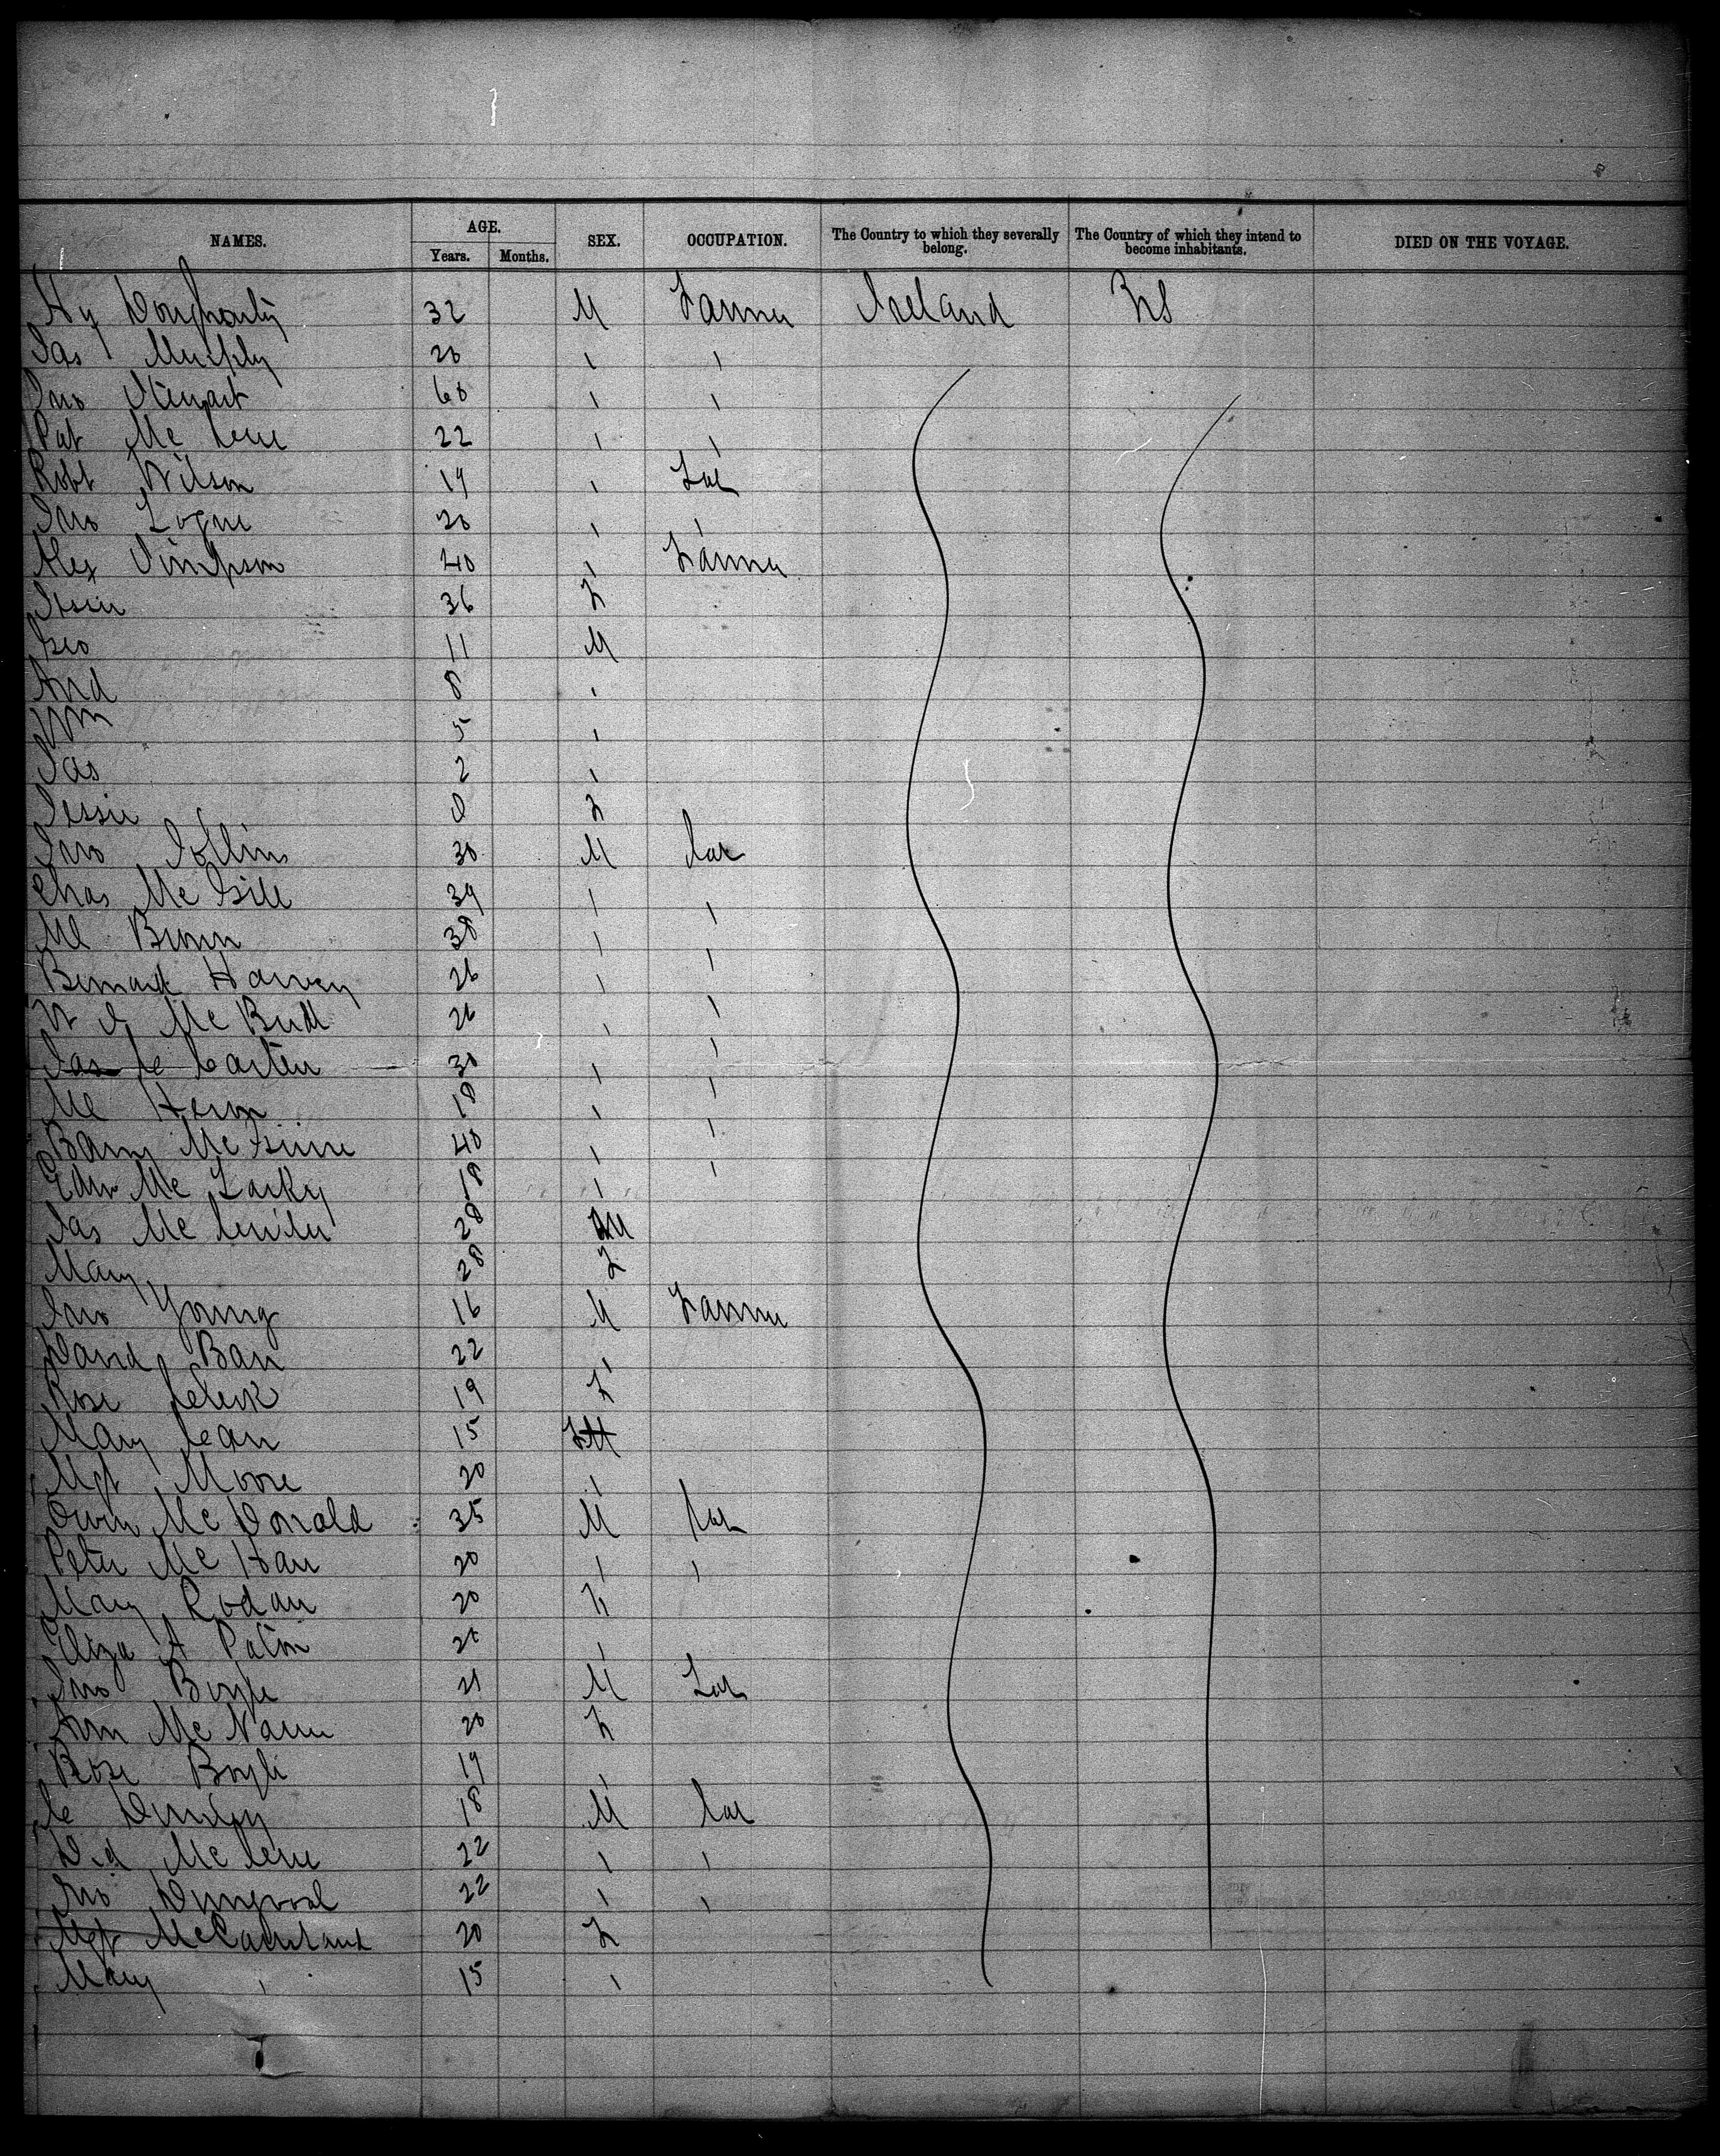 NAMES. AGE. SEX. OCCUPATION. The Country to which they severally belong. The Country of which they intend to become inhabitants. DIED ON THE VOYAGE.
Years. Months.
Hy Dougharty 32 M Farmer Ireland US
Jas Murphy 20 " "
Jno Stewart 60 " "
Pat Mc 22 " "
Robt Wilson 19 " Lab
Jno Logue 20 " "
Alex Simpson 40 " Farmer
36 F
Geo 11 M
And 8 "
Wm 5 "
Jas 2 "
Jessie 0 F
Jno Collins 30 M Lab
Chas McGill 39 " "
Ml Brown 38 " "
Bernard Harvey 26 " "
W J Mc 26 " "
Jas Carten 30 " "
Ml Heron 18 " "
Barny McGuire 40 " "
Edw Mc Larky 18 "
Jas Mc 28 M
Mary 28 F
Jno Young 16 M Farmer
David Barr 22 "
Rose 19 F
Mary Carr 15 F
Mgt Moore 20 "
Owen McDonald 35 M Lab
Peter Mc 20 " "
Mary Rodan 20 F
Eliza A Paton "
Jno Boyle 21 M Lab
Ann Mc 20 F
Rose Boyle 19 "
18 M Lab
Mc 22 " "
Jno 22 " "
Mgt 20 F
Mary " 15 "